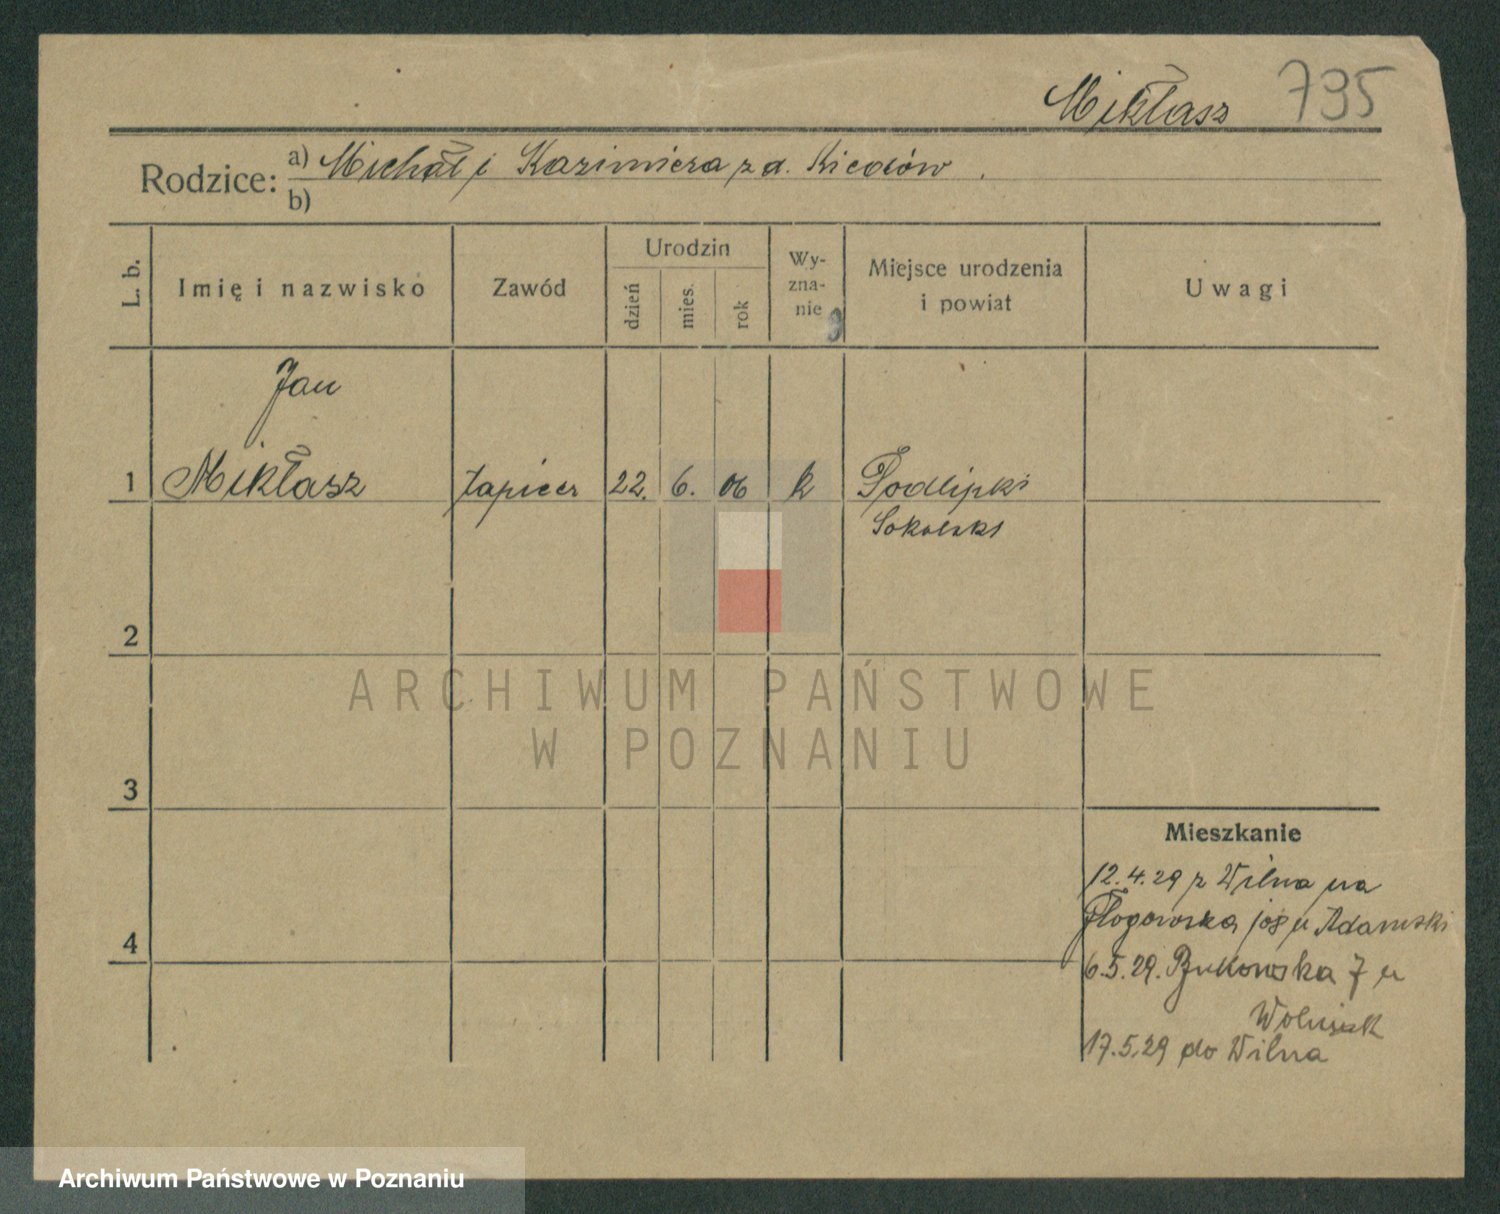 Mikłasz 795
Rodzice: a) Michał i Kazimiera z d.
b)
L. b.
Imię i nazwisko
Zawód
Urodzin
dzień
mies.
rok
Wy-
zna-
nie
Miejsce urodzenia
i powiat
Uwagi
Jan
1 Mikłasz tapicer 22. 6. 06 k Podlipki
Sokolski
2
3
4
Mieszkanie
12.4.29 z Wilna na
u Adamski
6.5.29. Bukowska 7 u
Woluszak
17.5.29 do Wilna
ARCHIWUM PAŃSTWOWE
W POZNANIU
Archiwum Państwowe w Poznaniu